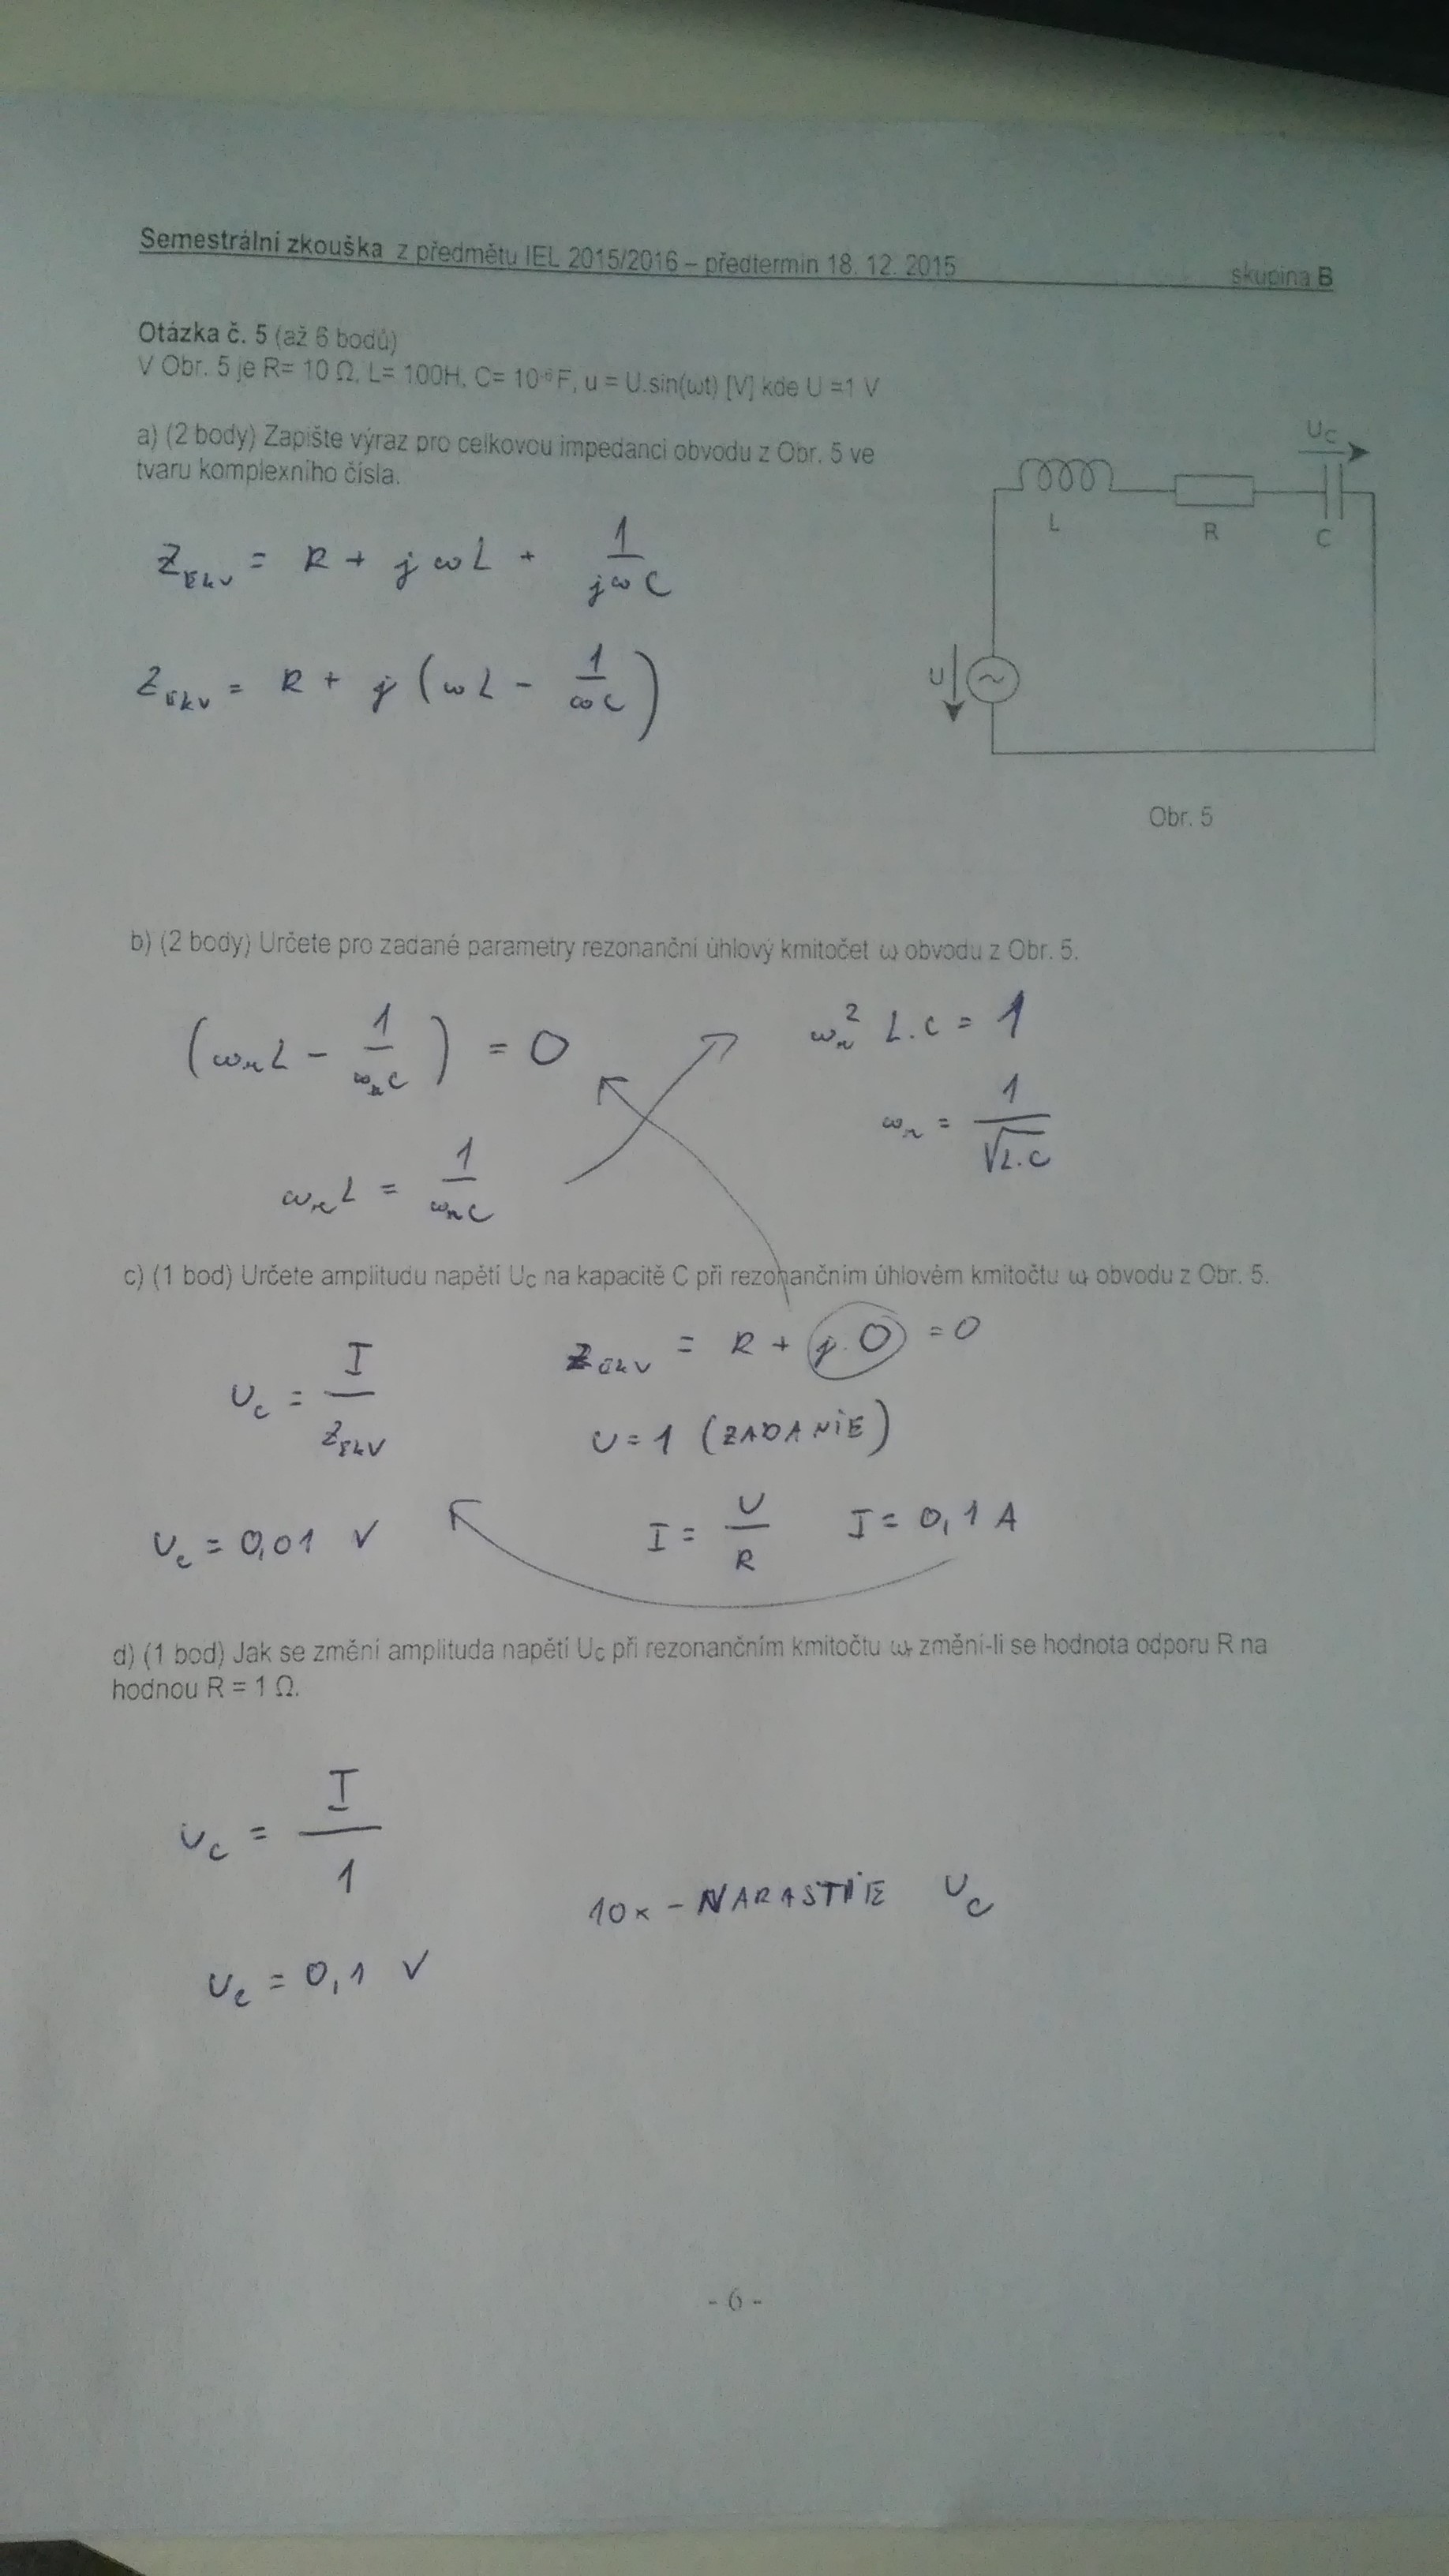 Semestrální zkouška z předmětu IEL 2015/2016 – předtermín 18. 12. 2015 skupina B
Otázka č. 5 (až 6 bodů)
V Obr. 5 je R= 10 Ω, L= 100H, C= 10⁻⁶ F, u = U.sin(ωt) [V] kde U =1 V
a) (2 body) Zapište výraz pro celkovou impedanci obvodu z Obr. 5 ve
tvaru komplexního čísla.
Z_EKV = R + jωL + 1/(jωC)
Z_EKV = R + j(ωL - 1/(ωC))
U_C
L
R
C
U
~
Obr. 5
b) (2 body) Určete pro zadané parametry rezonanční úhlový kmitočet ωr obvodu z Obr. 5.
(ω_r L - 1/(ω_r C)) = 0
ω_r L = 1/(ω_r C)
ω_r² L.C = 1
ω_r = 1/√(L.C)
c) (1 bod) Určete amplitudu napětí U_C na kapacitě C při rezonančním úhlovém kmitočtu ωr obvodu z Obr. 5.
U_C = I/Z_EKV
Z_EKV = R + j.0 = 0
U = 1 (ZADANIE)
I = U/R I = 0,1 A
U_C = 0,01 V
d) (1 bod) Jak se změní amplituda napětí U_C při rezonančním kmitočtu ωr změní-li se hodnota odporu R na
hodnou R = 1 Ω.
U_C = I/1
10x - NARASTNE U_C
U_C = 0,1 V
- 6 -